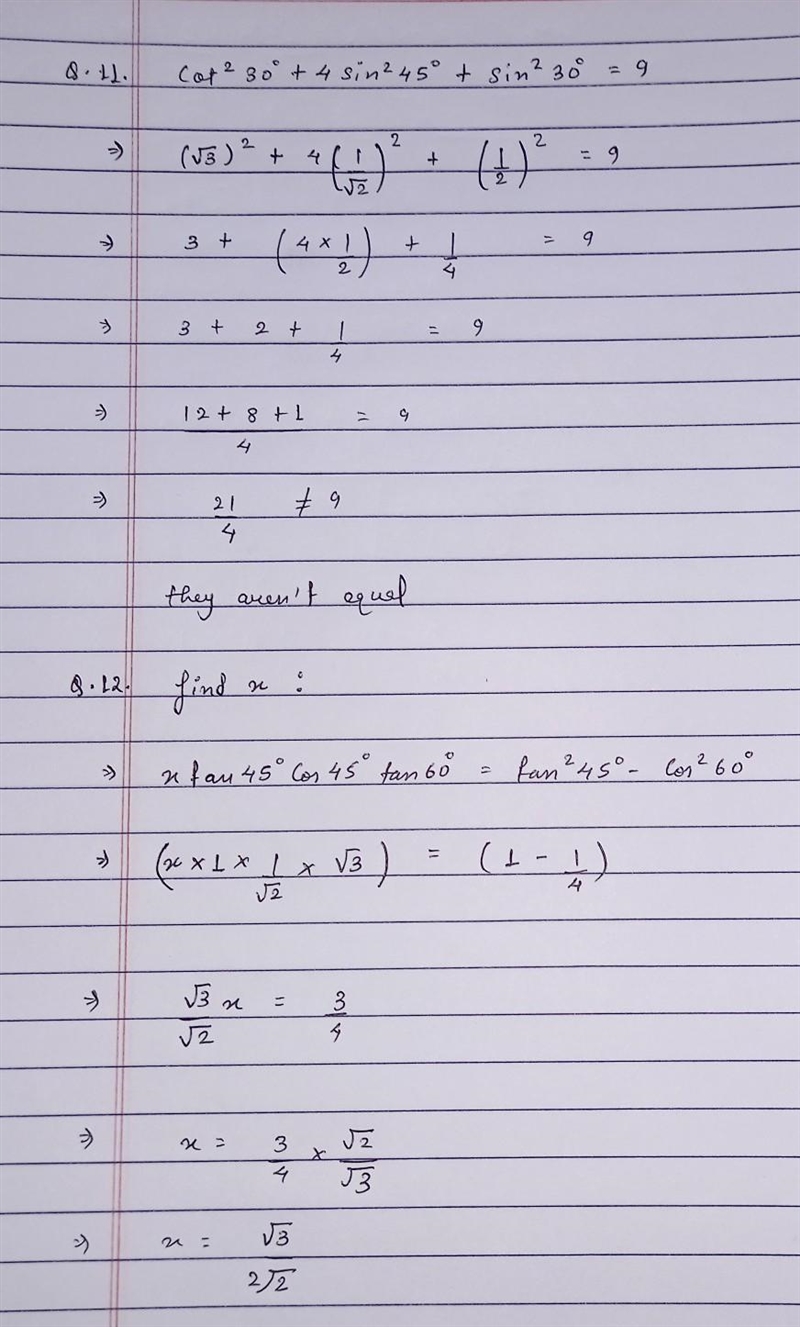 Q.11. Cot² 30° + 4 sin² 45° + sin² 30° = 9
⇒ (√3)² + 4(1/√2)² + (1/2)² = 9
⇒ 3 + (4 × 1/2) + 1/4 = 9
⇒ 3 + 2 + 1/4 = 9
⇒ (12 + 8 + 1)/4 = 9
⇒ 21/4 ≠ 9
they aren't equal
Q.12. find x :
⇒ x tan 45° Cos 45° tan 60° = tan² 45° - Cos² 60°
⇒ (x × 1 × 1/√2 × √3) = (1 - 1/4)
⇒ √3/√2 x = 3/4
⇒ x = 3/4 × √2/√3
⇒ x = √3/2√2